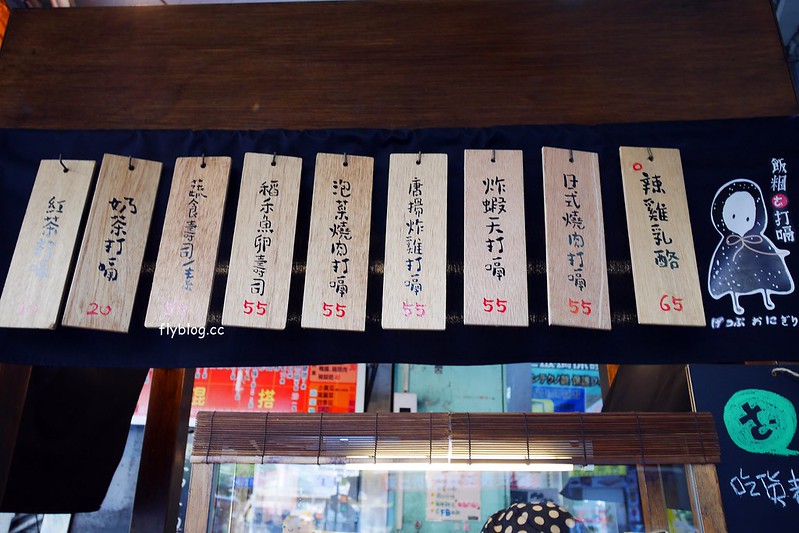 紅茶打嗝
奶茶打嗝
20
蔬食壽司/素
稻禾魚卵壽司
55
泡菜燒肉打嗝
55
唐揚炸雞打嗝
55
炸蝦天打嗝
55
日式燒肉打嗝
55
辣雞乳酪
65
飯糰む打嗝
げつぷ おにぎり
む
吃貨
搭
flyblog.cc